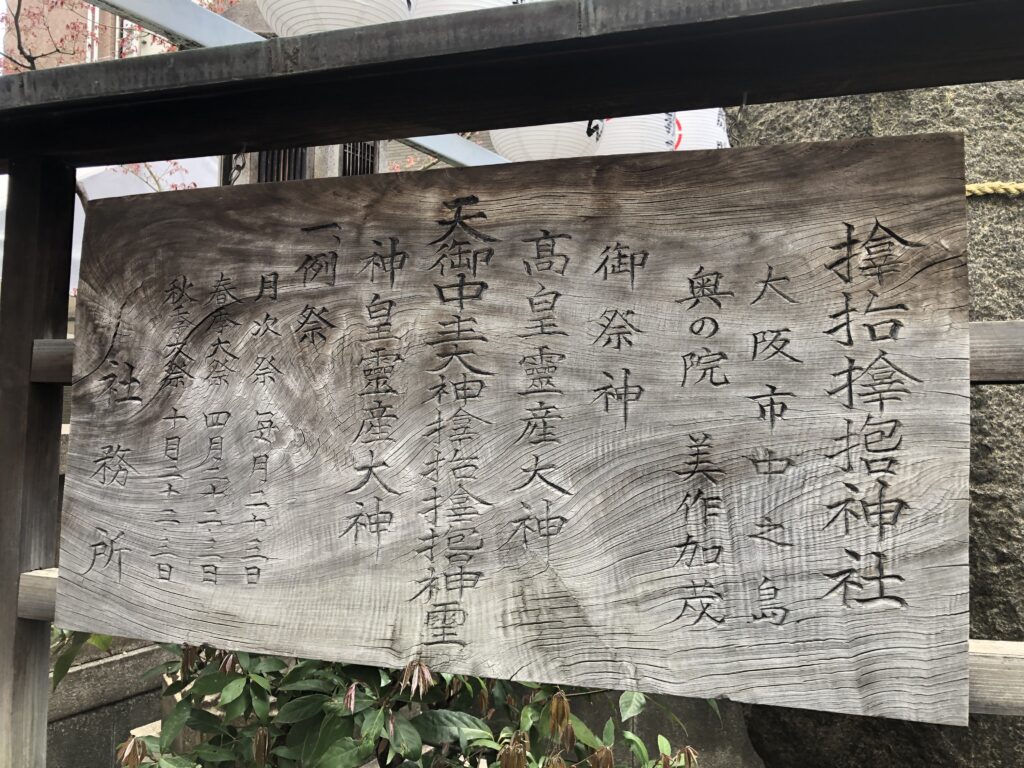 神社
大阪市中之島
奥の院 美作加茂
御祭神
髙皇靈産大神
天御中主大神 神霊
神皇靈産大神
一、例祭
月次祭 毎月二十三日
春季大祭 四月二十二三日
秋季大祭 十月二十二三日
社務所